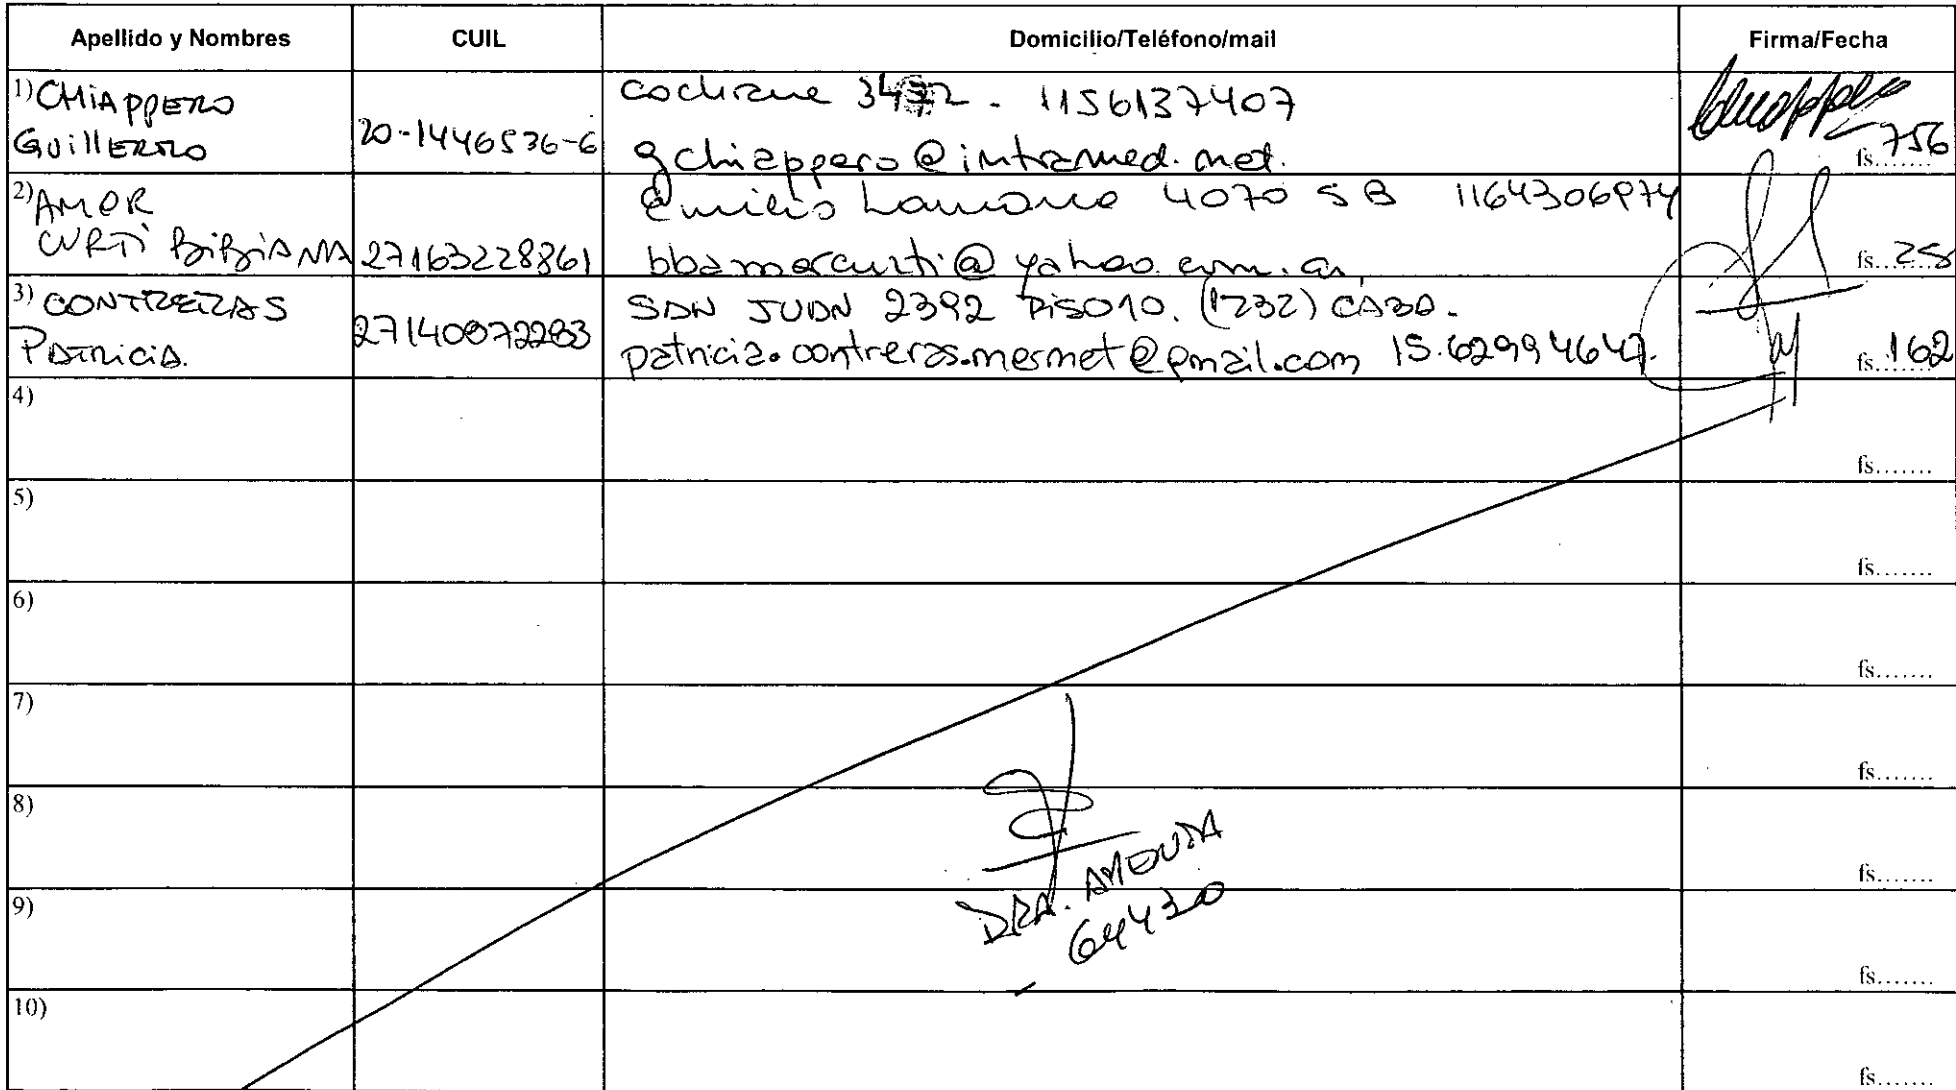 Apellido y Nombres CUIL Domicilio/Teléfono/mail Firma/Fecha
1) CHIAPPERO
Guillermo
20-1446536-6
cochrane - 1156137407
gchiappero@intramed.net.
756
fs.......
2) AMOR
CURTI BIBIANA
27163228861
Emilio Lamarca 4070 5B 1164306974
bbamorcurti@yahoo.com.ar
fs. 258
3) CONTRERAS
PATRICIA.
SAN JUAN 2392 PISO 10. (1232) CABA.
patricia.contreras.mermet@gmail.com 15.62994647.
fs. 162
4)
fs.......
5)
fs.......
6)
fs.......
7)
fs.......
8)
fs.......
9)
fs.......
10)
fs.......
DRA.
64430